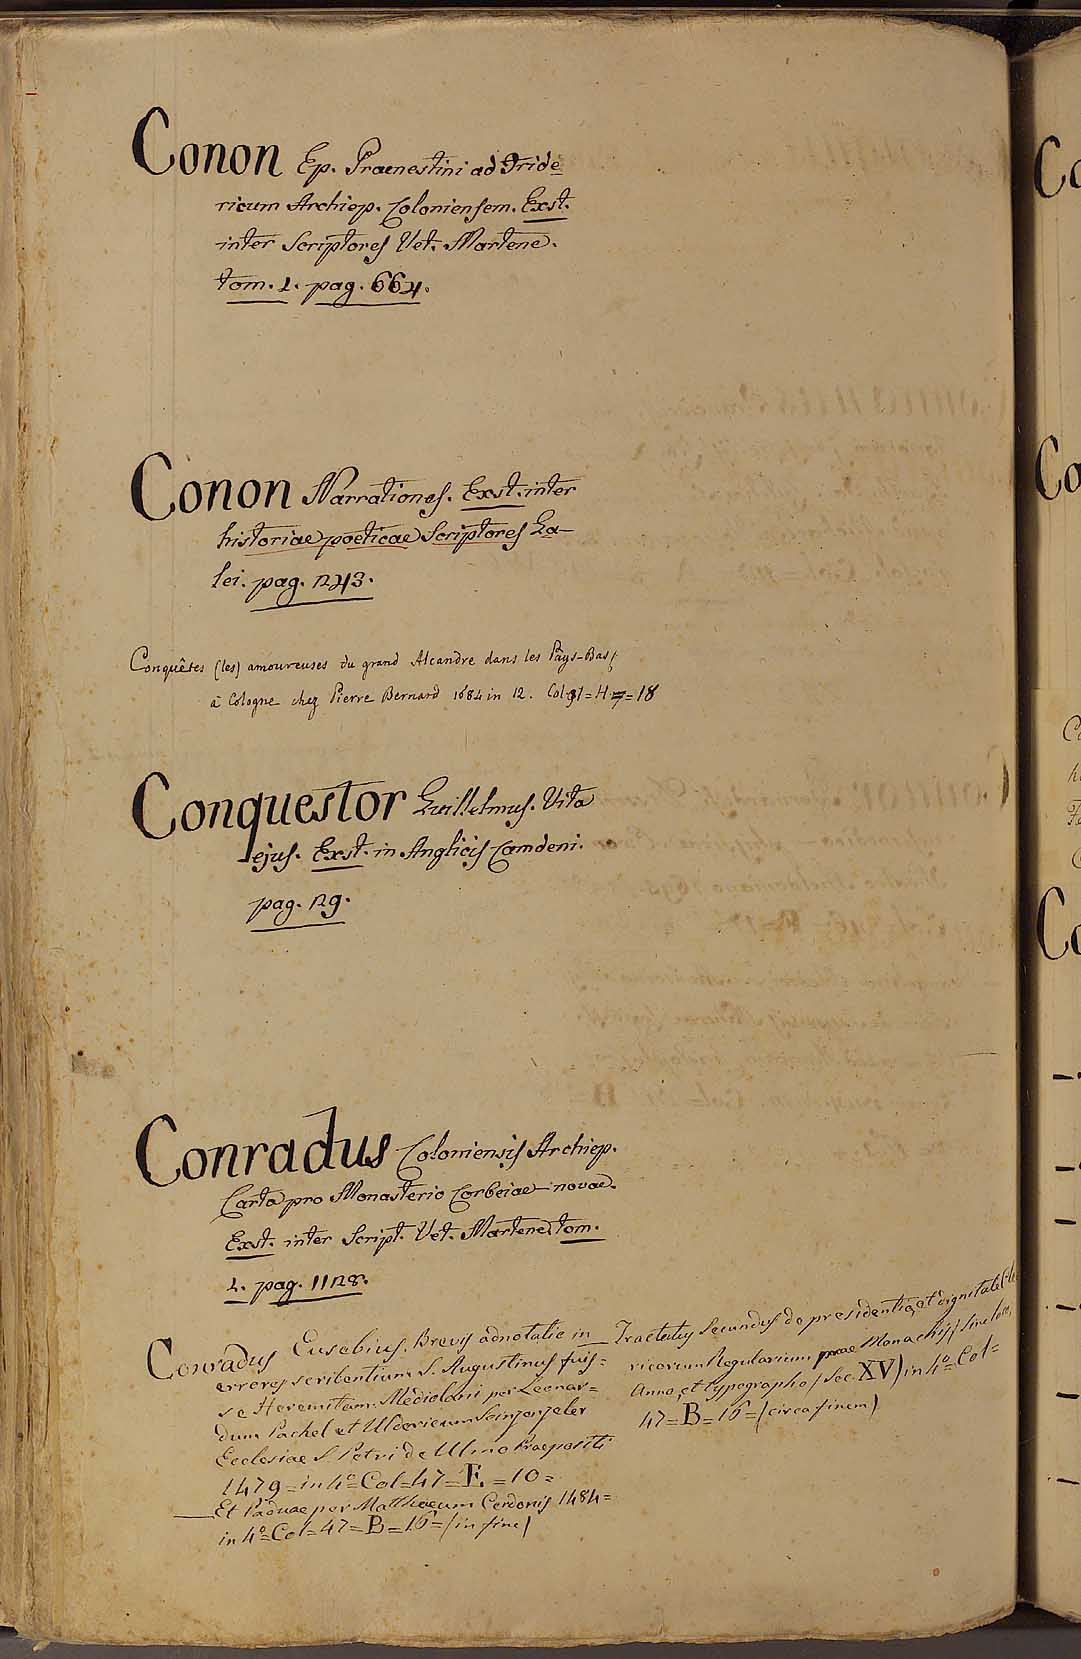 Conon Ep. Praenestini ad Fride
ricum Archiep. Coloniensem. Exst.
inter Scriptores Vet. Martene.
tom. 1. pag. 664.
Conon Narrationes. Exst. inter
historiae poeticae Scriptores Ga-
lei. pag. 243.
Conquêtes (les) amoureuses du grand Alcandre dans les Pays-Bas
à Cologne chez Pierre Bernard 1684 in 12. Col 31=H=18
Conquestor Guillelmus. Vita
ejus. Exst. in Anglicis Camdeni.
pag. 29.
Conradus Coloniensis Archiep.
Carta pro Monasterio Corbeiae novae.
Exst. inter Script. Vet. Martene tom.
1. pag. 1128.
Conradus Eusebius. Brevis adnotatio in
errores scribentium S. Augustinus fuis=
se Heremitam. Mediolani per Leonar=
dum Pachel et Uldericum Scinzenzeler
Ecclesiae S. Petri de Ulmo Praepositi
1479=in 4º=Col=47=E=10=
Et Paduae per Matthaeum Cerdonis 1484=
in 4º=Col=47=B=16=(in fine)
Tractatus Secundus de presidentia, et dignitate Cle
ricorum Regularium prae Monachis/ sine loco,
Anno, et typographo/ Sec. XV) in 4º Col=
47=B=16=(circa finem)